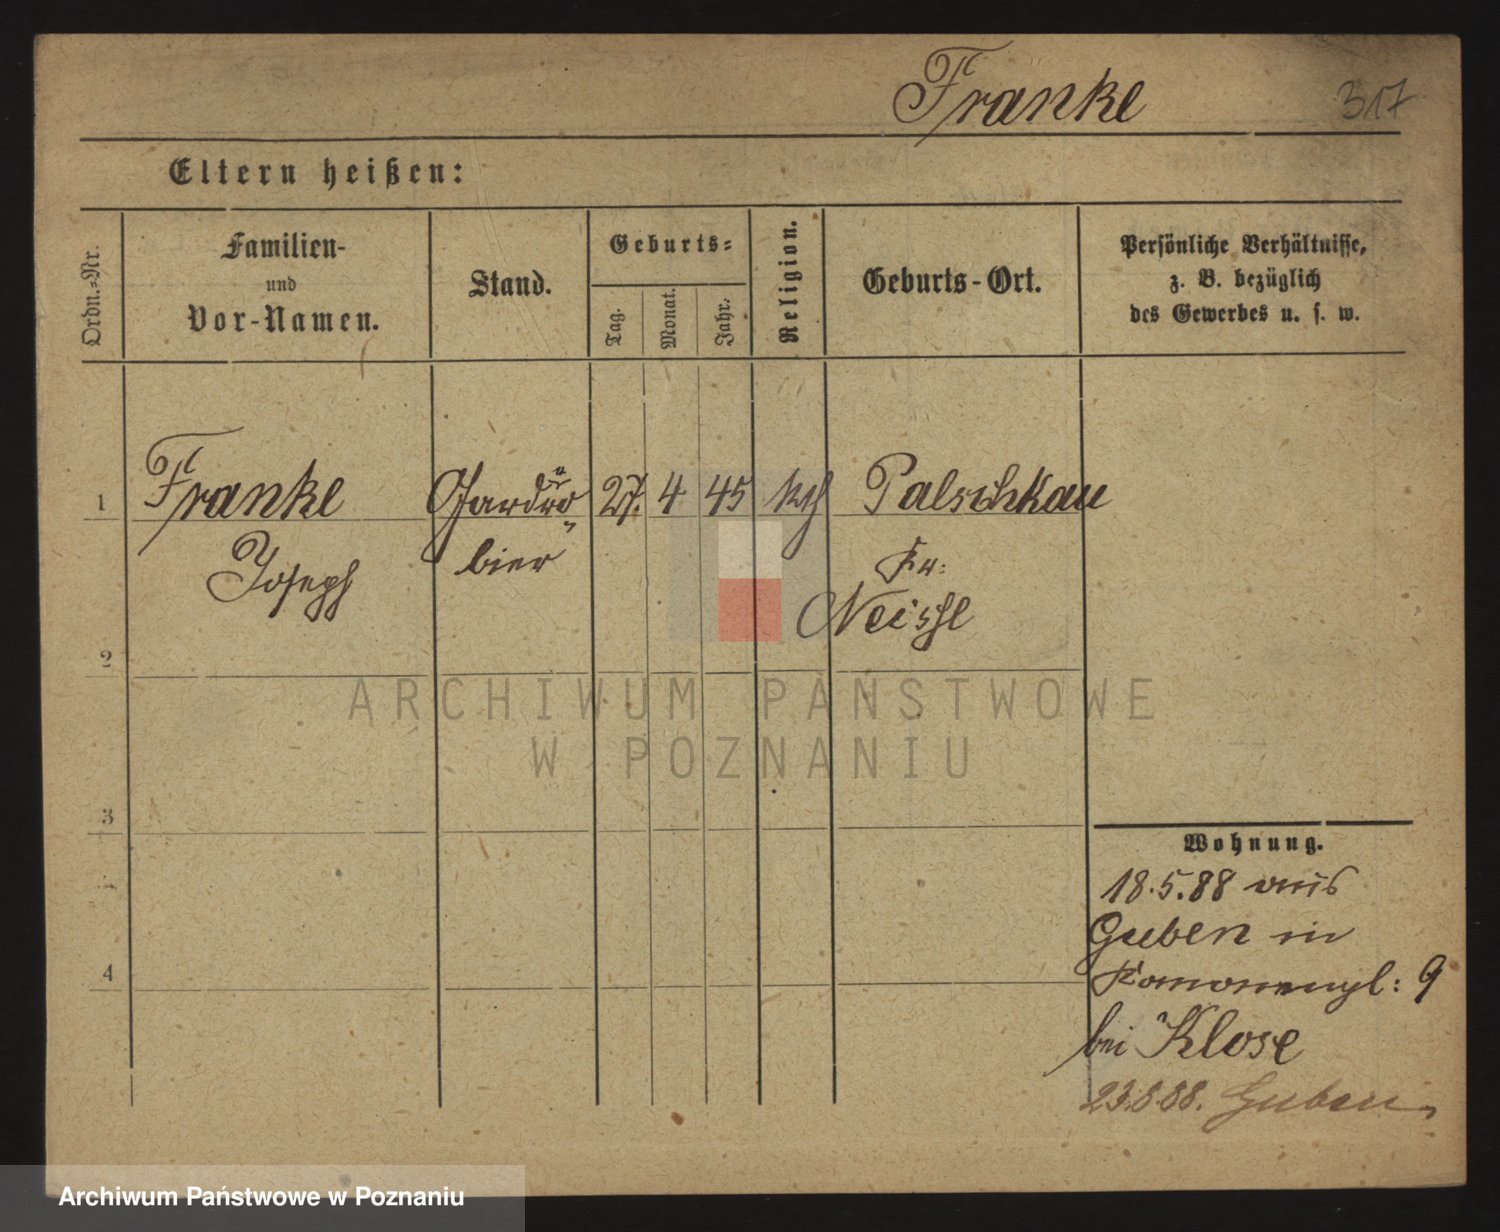 Franke 317
Eltern heißen:
Ordn.=Nr.
Familien-
und
Vor-Namen.
Stand.
Geburts=
Tag.
Monat.
Jahr.
Religion.
Geburts-Ort.
Persönliche Verhältnisse,
z. B. bezüglich
des Gewerbes u. s. w.
1 Franke Gardero 27. 4 45 kth Palschkau
Joseph bier Kr:
Neisse
2
3
4
Wohnung.
18.5.88 aus
Guben in
9
bei Klose
23.8.88. Guben
ARCHIWUM PAŃSTWOWE
W POZNANIU
Archiwum Państwowe w Poznaniu